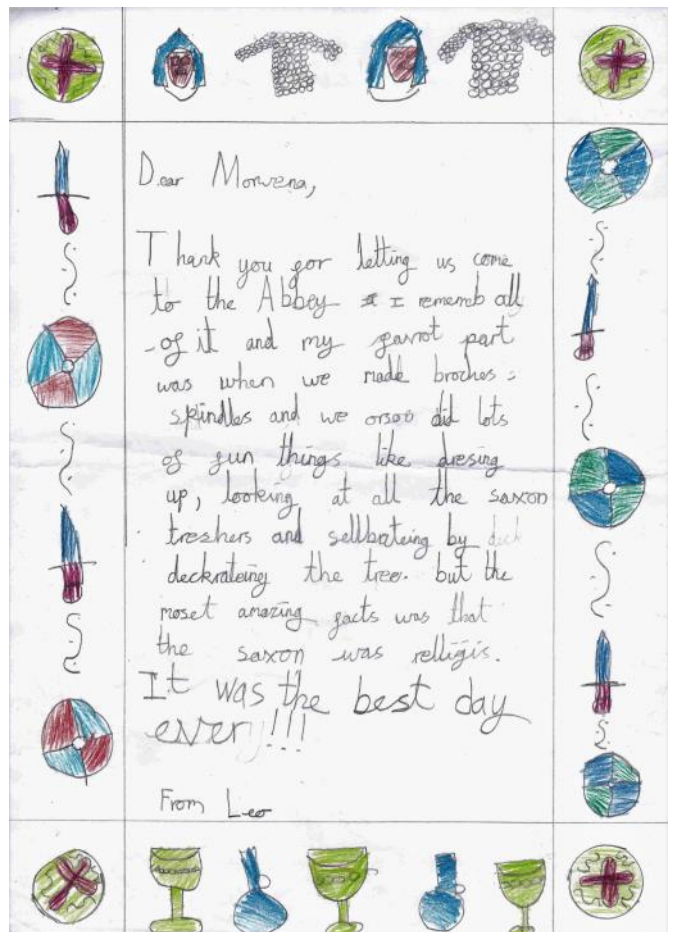 Dear Morwena,
Thank you gor letting us come
to the Abbey I rememb all
of it and my gavrot part
was when we made broches
spindles and we orsoo did lots
of gun things like dresing
up, looking at all the saxon
treshers and sellbrateing by deck
deckrateing the tree. but the
moset amazing gacts was that
the saxon was relligis.
It was the best day
ever!!!
From Leo